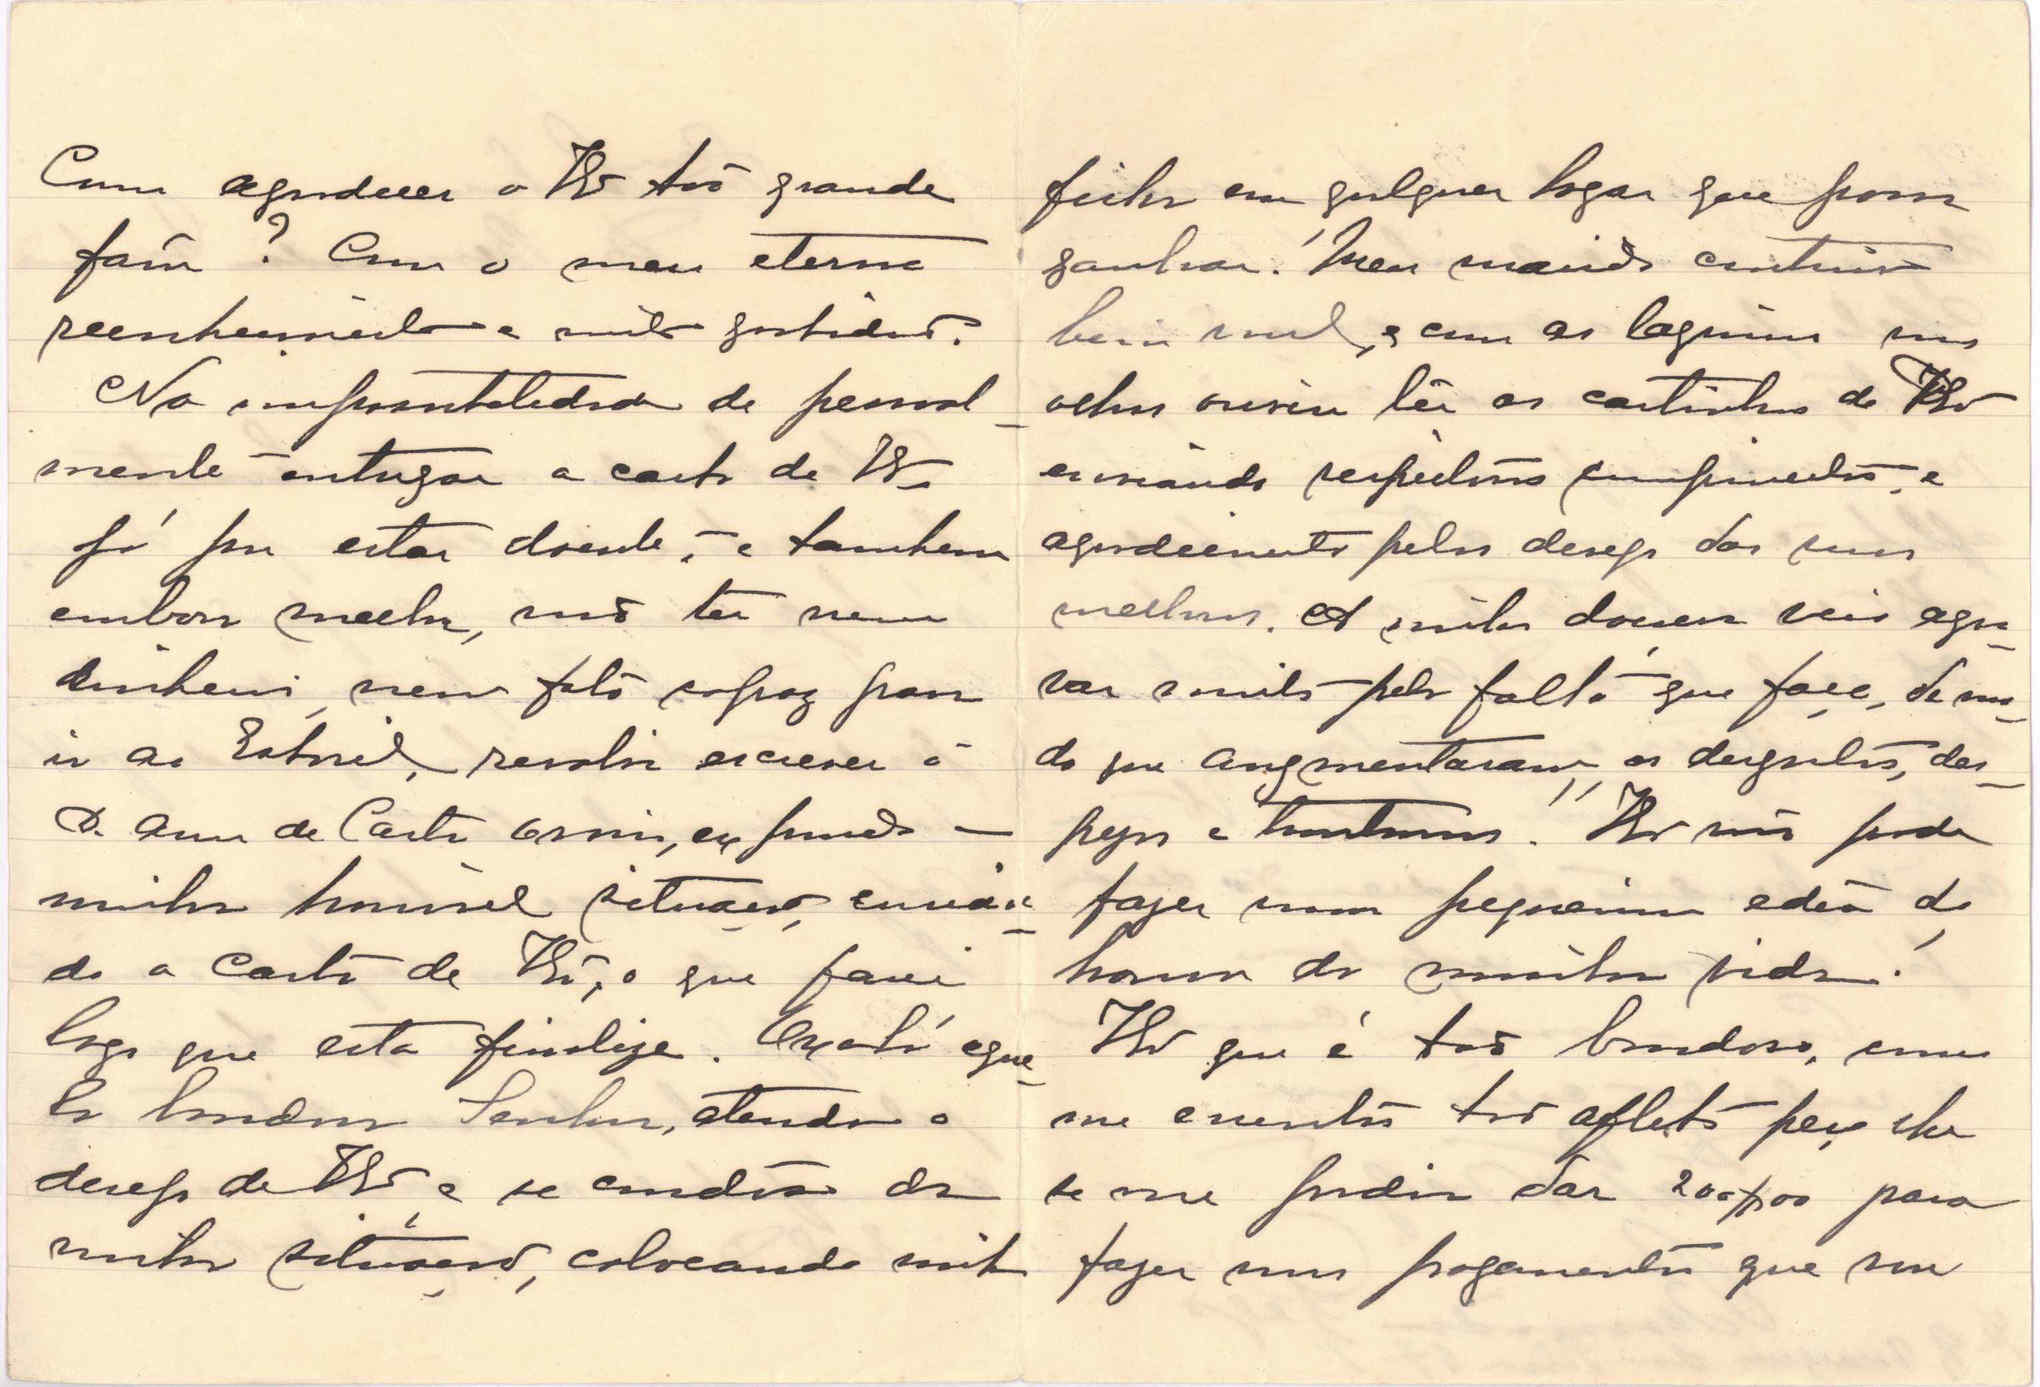 Como agradecer a V. Ex.ª tão grande
favôr? Com o meu eterno
reconhecimento e muita gratidão.
Na impossibilidade de pessoal-
mente entregar a carta de V. Ex.ª
já por estar doente, e tambem
embora melhor, não ter nem
dinheiro, nem fato capaz para
ir ao Estoril, resolvi escrever á
D. de Castro expondo a
minha horrivel situação, envian-
do a carta de V. Ex.ª, o que farei
logo que esta finalize. Oxalá aque-
la bondosa Senhora, atenda o
desejo de V. Ex.ª, e se condôa da
minha situação, colocando minha
filha em qualquer logar que possa
ganhar! Meu marido continúa
bem mal, e com as lagrimas nos
olhos ouviu lêr as cartinhas de V. Ex.ª
enviando respeitosos cumprimentos, e
agradecimento pelos desejos das suas
melhoras. A minha doença veio agra-
var muito pela falta que faço, de mo-
do que augmentaram os desgostos, des-
pezas e tormentos! V. Ex.ª não póde
fazer uma pequenina edêa do
horror da minha vida!
V. Ex.ª que é tão bondoso, como
me encontro tão aflita peço-lhe
se me podia dar 200$00 para
fazer uns pagamentos que sou